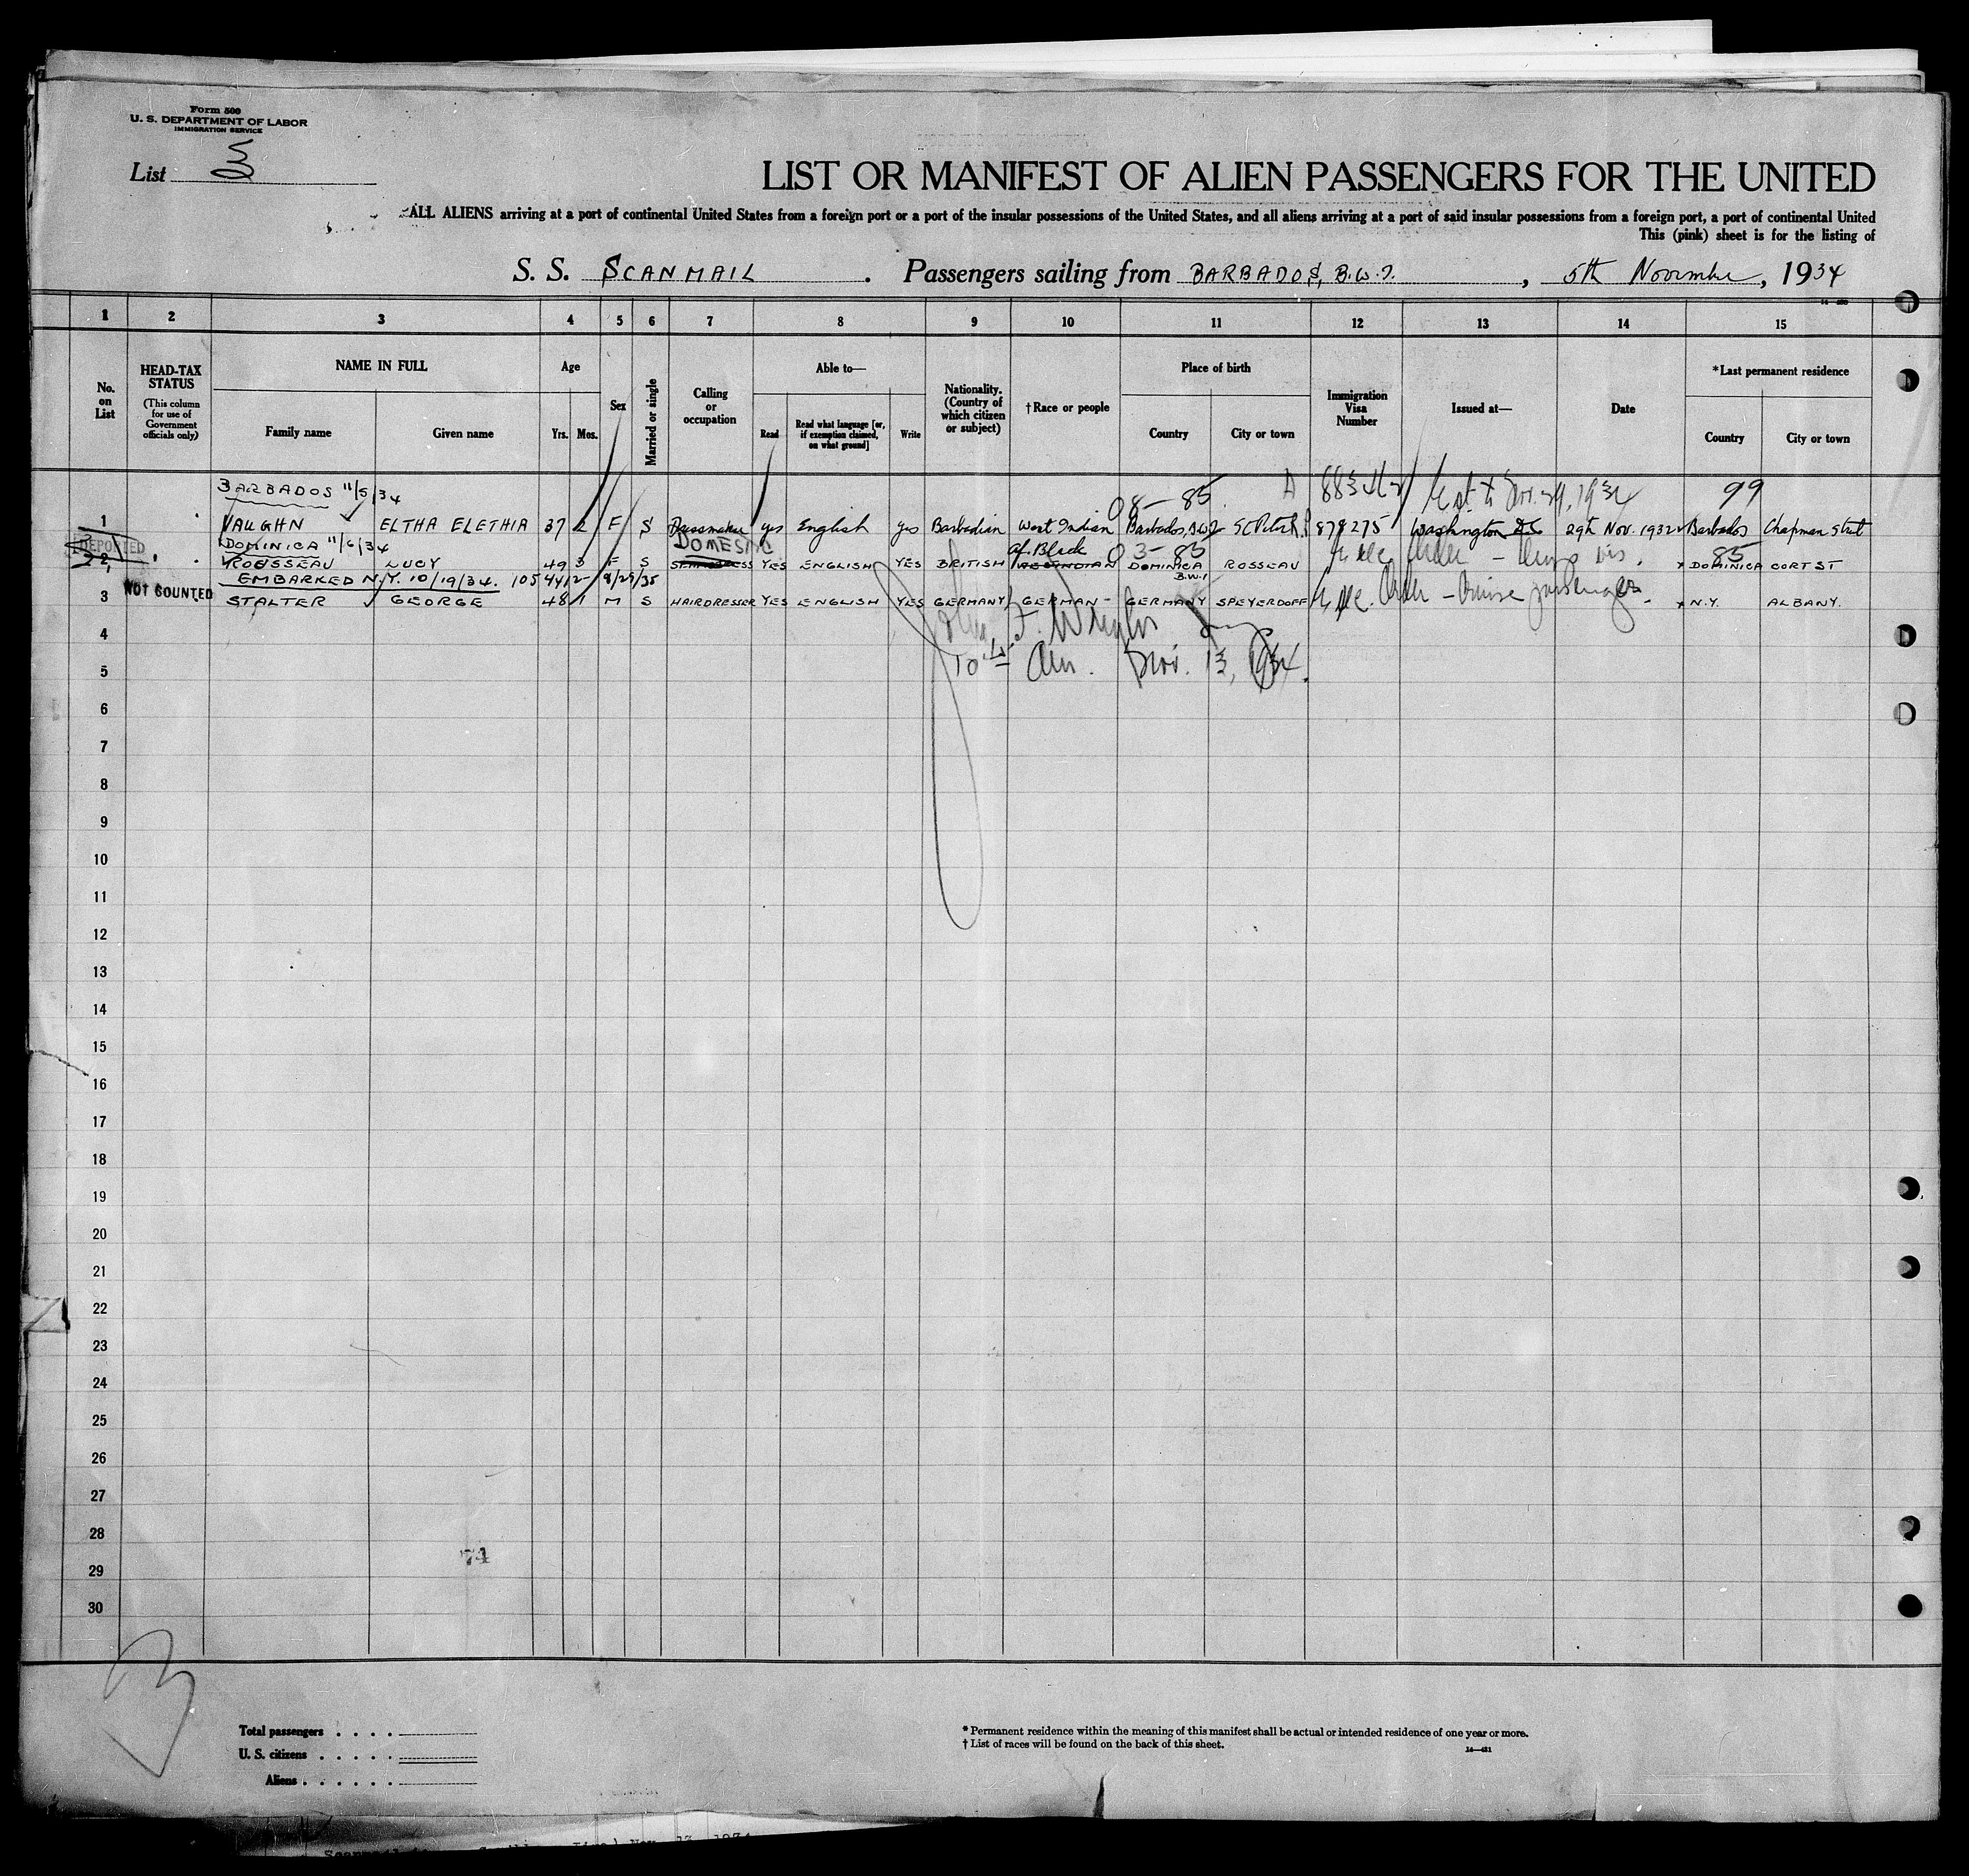 Form 500
U. S. DEPARTMENT OF LABOR
IMMIGRATION SERVICE
List 3
LIST OR MANIFEST OF ALIEN PASSENGERS FOR THE UNITED
ALL ALIENS arriving at a port of continental United States from a foreign port or a port of the insular possessions of the United States, and all aliens arriving at a port of said insular possessions from a foreign port, a port of continental United
This (pink) sheet is for the listing of
S. S. SCANMAIL . Passengers sailing from BARBADOS, B.W.I. , 5th November, 1934
1 2 3 4 5 6 7 8 9 10 11 12 13 14 15
No. on List
HEAD-TAX STATUS
(This column for use of Government officials only)
NAME IN FULL
Family name Given name
Age
Yrs. Mos.
Sex
Married or single
Calling or occupation
Able to—
Read
Read what language [or, if exemption claimed, on what ground]
Write
Nationality. (Country of which citizen or subject)
†Race or people
Place of birth
Country City or town
Immigration Visa Number
Issued at—
Date
*Last permanent residence
Country City or town
BARBADOS 11/5/34 08-85 99
1 VAUGHN ELTHA ELETHIA 37 2 F S Dressmaker yes English yes Barbadian West Indian Barbados, B.W.I 878275 Washington D.C 29th Nov. 1932 Barbados Chapman Street
DEPORTED DOMINICA 11/6/34 DOMESTIC Af. Black 03-85 85
2 ROUSSEAU LUCY 49 3 F S YES ENGLISH YES BRITISH WEST INDIAN DOMINICA B.W.I ROSSEAU DOMINICA CORT ST
EMBARKED N.Y. 10/19/34.
3 NOT COUNTED STALTER GEORGE 48 1 M S HAIRDRESSER YES ENGLISH YES GERMANY GERMAN GERMANY SPEYERDOFF N.Y. ALBANY.
4
5 Nov. 13, 1934.
6
7
8
9
10
11
12
13
14
15
16
17
18
19
20
21
22
23
24
25
26
27
28
74
29
30
Total passengers . . . .
U. S. citizens . . . . .
Aliens . . . . . .
* Permanent residence within the meaning of this manifest shall be actual or intended residence of one year or more.
† List of races will be found on the back of this sheet.